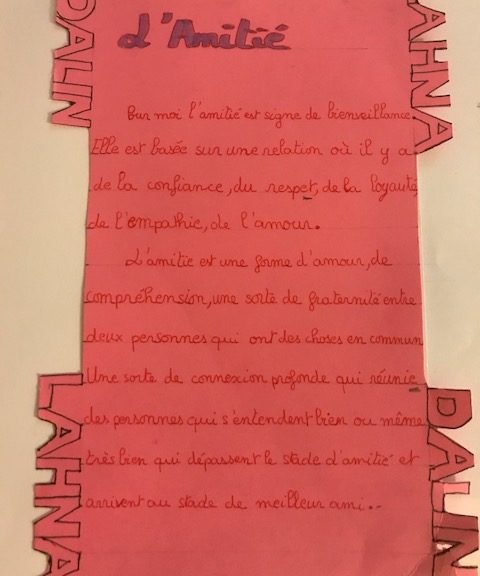 DALIN
LAHNA
L'Amitié
Pour moi l'amitié est signe de bienveillance.
Elle est basée sur une relation où il y a
de la confiance, du respet, de la loyauté,
de l'empathie, de l'amour.
L'amitie est une forme d'amour, de
compréhension, une sorte de fraternité entre
deux personnes qui ont des choses en commun
Une sorte de connexion profonde qui réunie
des personnes qui s'entendent bien ou même
très bien qui dépassent le stade d'amitié et
arrivent au stade de meilleur ami...
LAHNA
DALIN